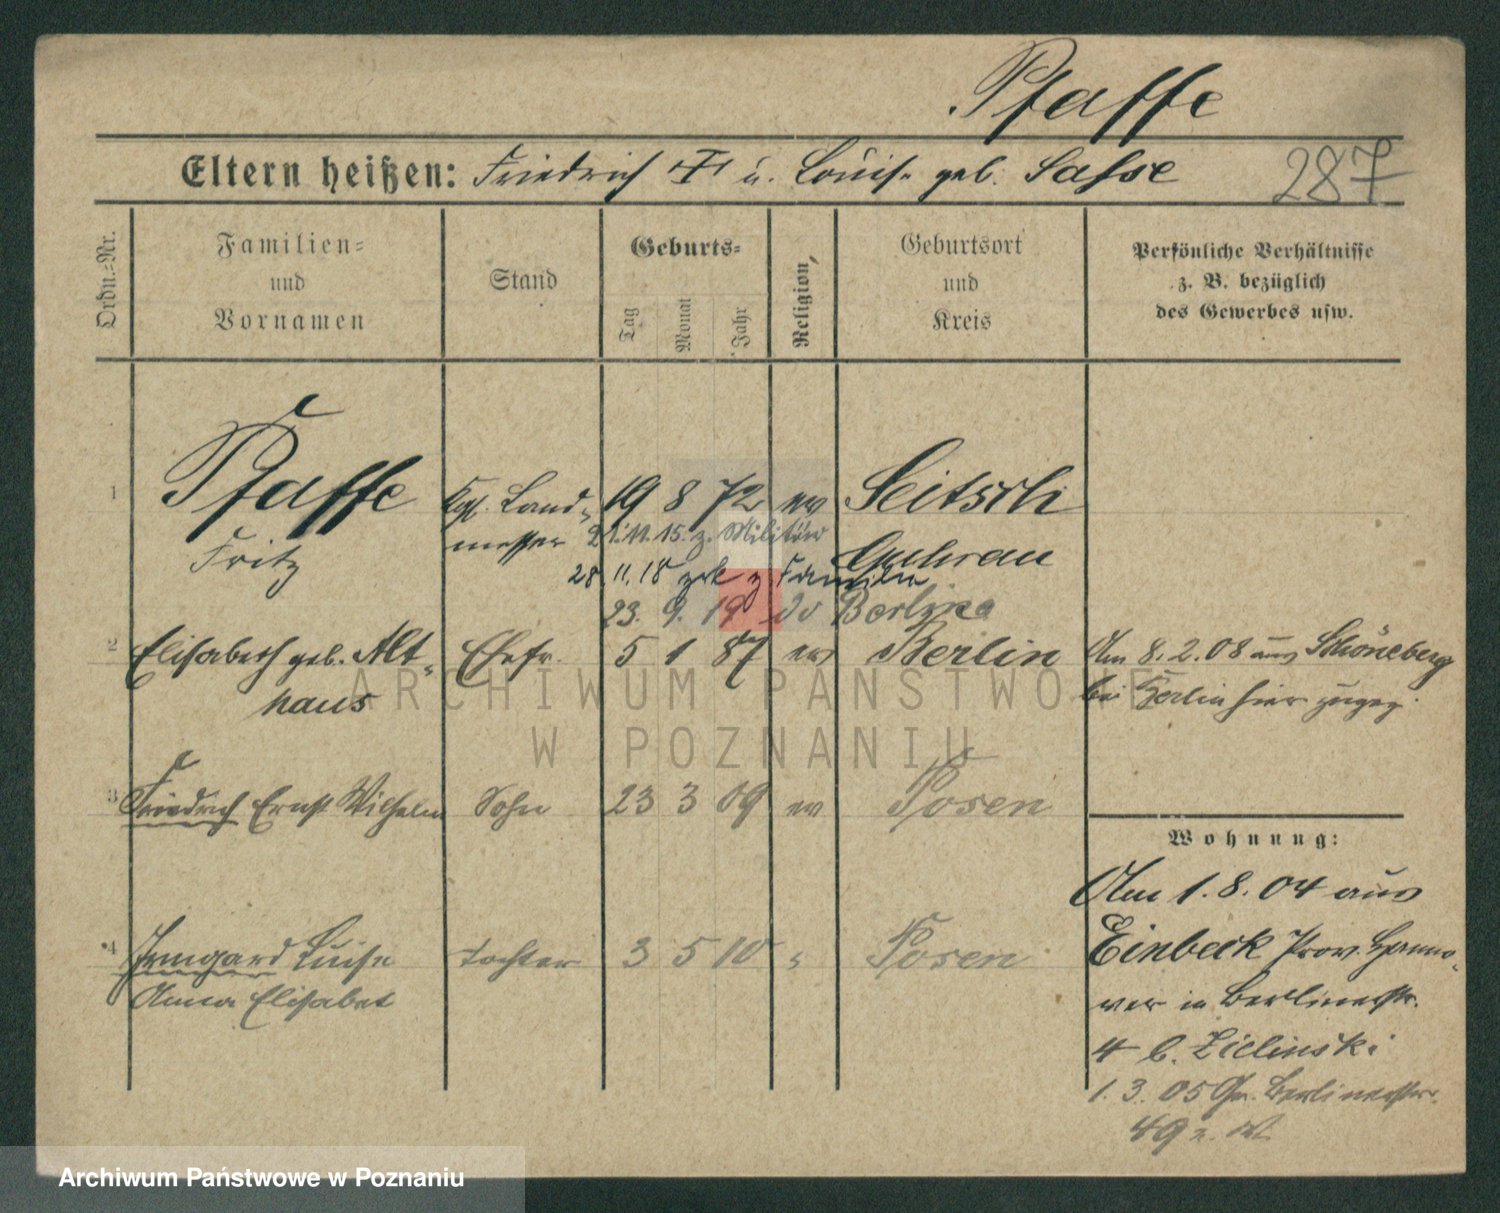 Pfaffe
Eltern heißen: Friedrich u. Louise geb. Sasse 287
Ordn.-Nr.
Familien-
und
Vornamen
Stand
Geburts-
Tag
Monat
Jahr
Religion
Geburtsort
und
Kreis
Persönliche Verhältnisse
z. B. bezüglich
des Gewerbes usw.
1 Pfaffe Kgl. Land- 19 8 72 ev Seitsch
Fritz messer 21.11.15. z. Militär Guhrau
28.11.18 zrk z. Familie
23. 9. 19
2 Elisabeth geb. Alt- Ehefr. 5 1 87 ev Berlin Am 8.2.08 aus Schöneberg
haus bei Berlin hier zugez.
3 Friedrich Ernst Wilhelm Sohn 23 3 09 ev Posen
Wohnung:
Am 1.8.04 aus
4 Irmgard Luise Tochter 3 5 10 " Posen Einbeck Prov. Hanno-
Anna Elisabet ver in Berlinerstr.
4 b. Zielinski
1.3.05 Berlinerstr.
49
ARCHIWUM PAŃSTWOWE
W POZNANIU
Archiwum Państwowe w Poznaniu